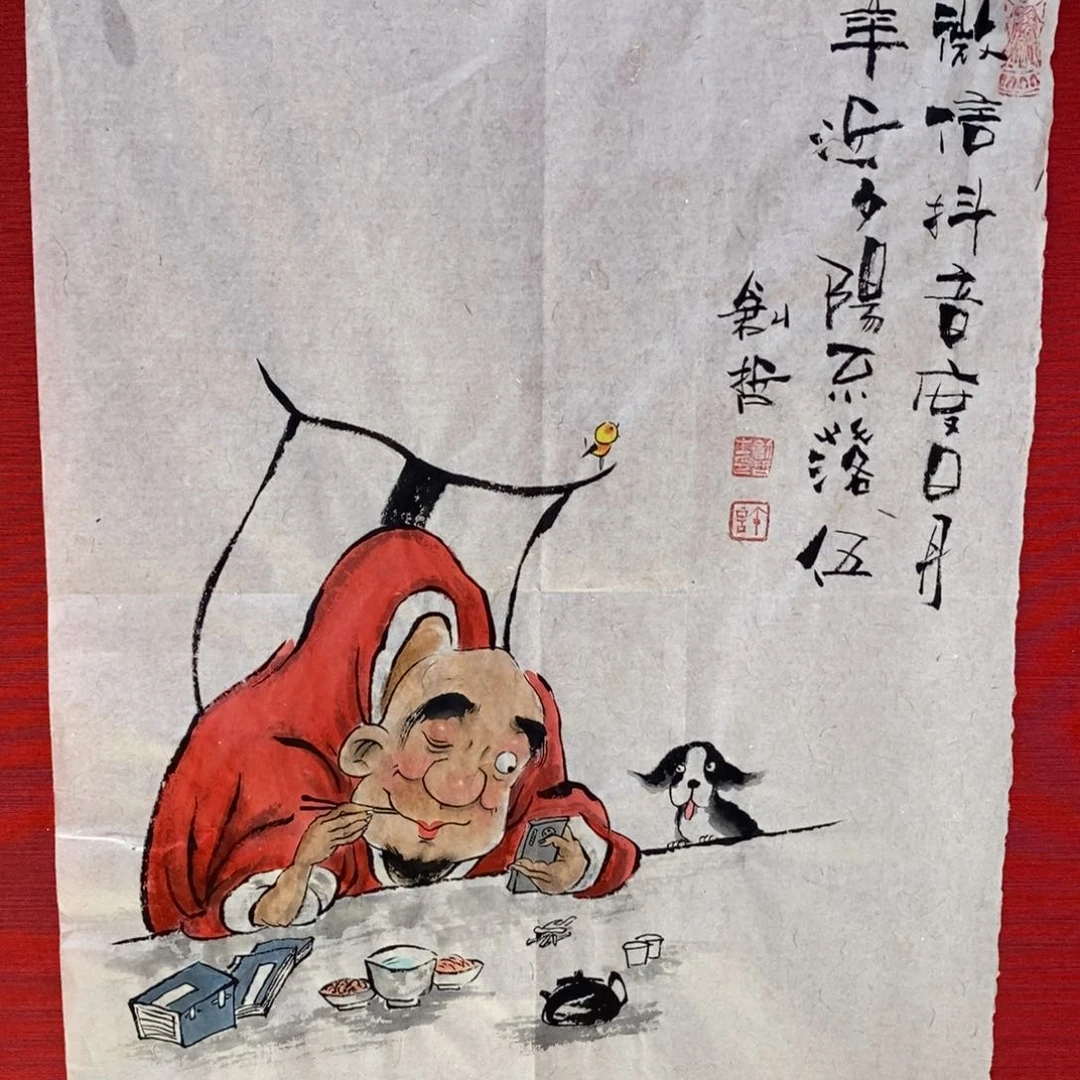 微信抖音度日月
年近夕陽不落伍
創哲
許